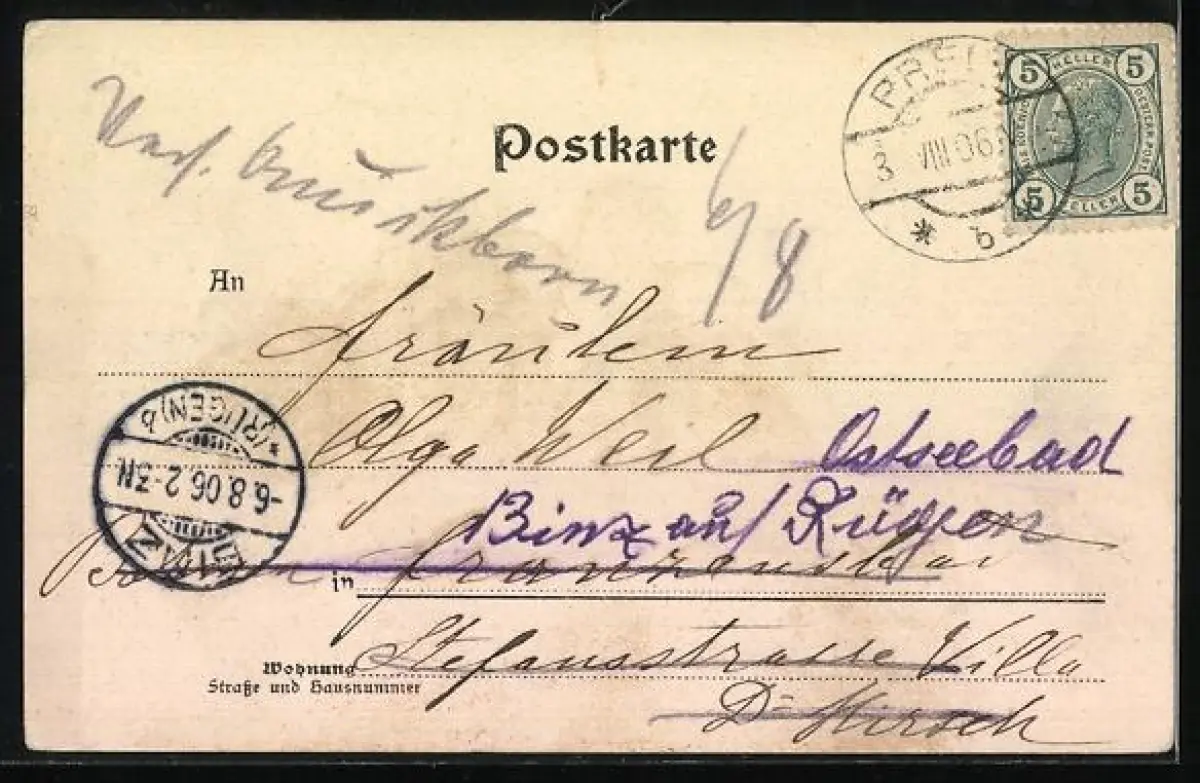 Postkarte
3 VIII 06
* b
5 HELLER 5
5 HELLER 5
Nach
6/8
An
Fräulein
Olga Weil Ostseebad
Binz auf Rügen
*(RÜGEN) b
-6.8.06 2-3N
BINZ
in Franzensbad
Wohnung
Straße und Hausnummer
Stefansstrasse Villa
Dr Hirsch